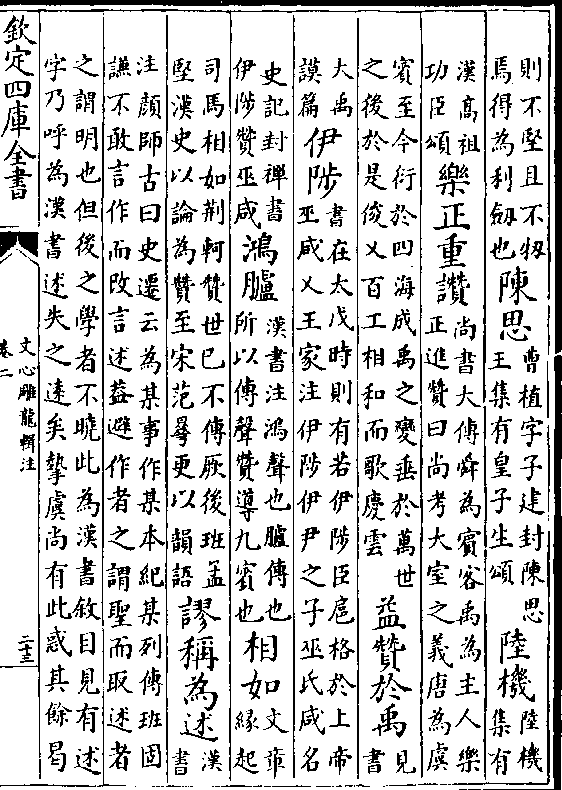 則不堅且不牣
馬得為利劒也
陳思
曹植字子建封陳思
王集有皇子生頌
陸機
陸機
集有
漢髙祖
功臣頌
樂正重讚
尚書大傳舜為賓客禹為主人樂
正進贊曰尚考大室之義唐為虞
賓至今衍於四海成禹之變垂於萬世
之後於是俊乂百工相和而歌慶雲
益贊於禹
見
書
大禹
謨篇
伊陟
書在大戊時則有若伊陟臣扈格於上帝
巫咸乂王家注伊陟伊尹之子巫氏咸名
史記封禪書
伊陟贊巫咸
鴻臚
漢書注鴻聲也臚傳也
所以傳聲贊導九賓也
相如
文章
緣起
司馬相如荆軻贊世已不傳厥後班孟
堅漢史以論為贊至宋范曅更以韻語
謬稱為述
漢
書
注顔師古曰史遷云為某事作某本紀某列傳班固
謙不敢言作而改言述葢避作者之謂聖而取述者
之謂明也但後之學者不曉此為漢書敘目見有述
字乃呼為漢書述失之逺矣摯虞尚有此惑其餘曷
欽定四庫全書
文心雕龍輯注
卷二
二十三